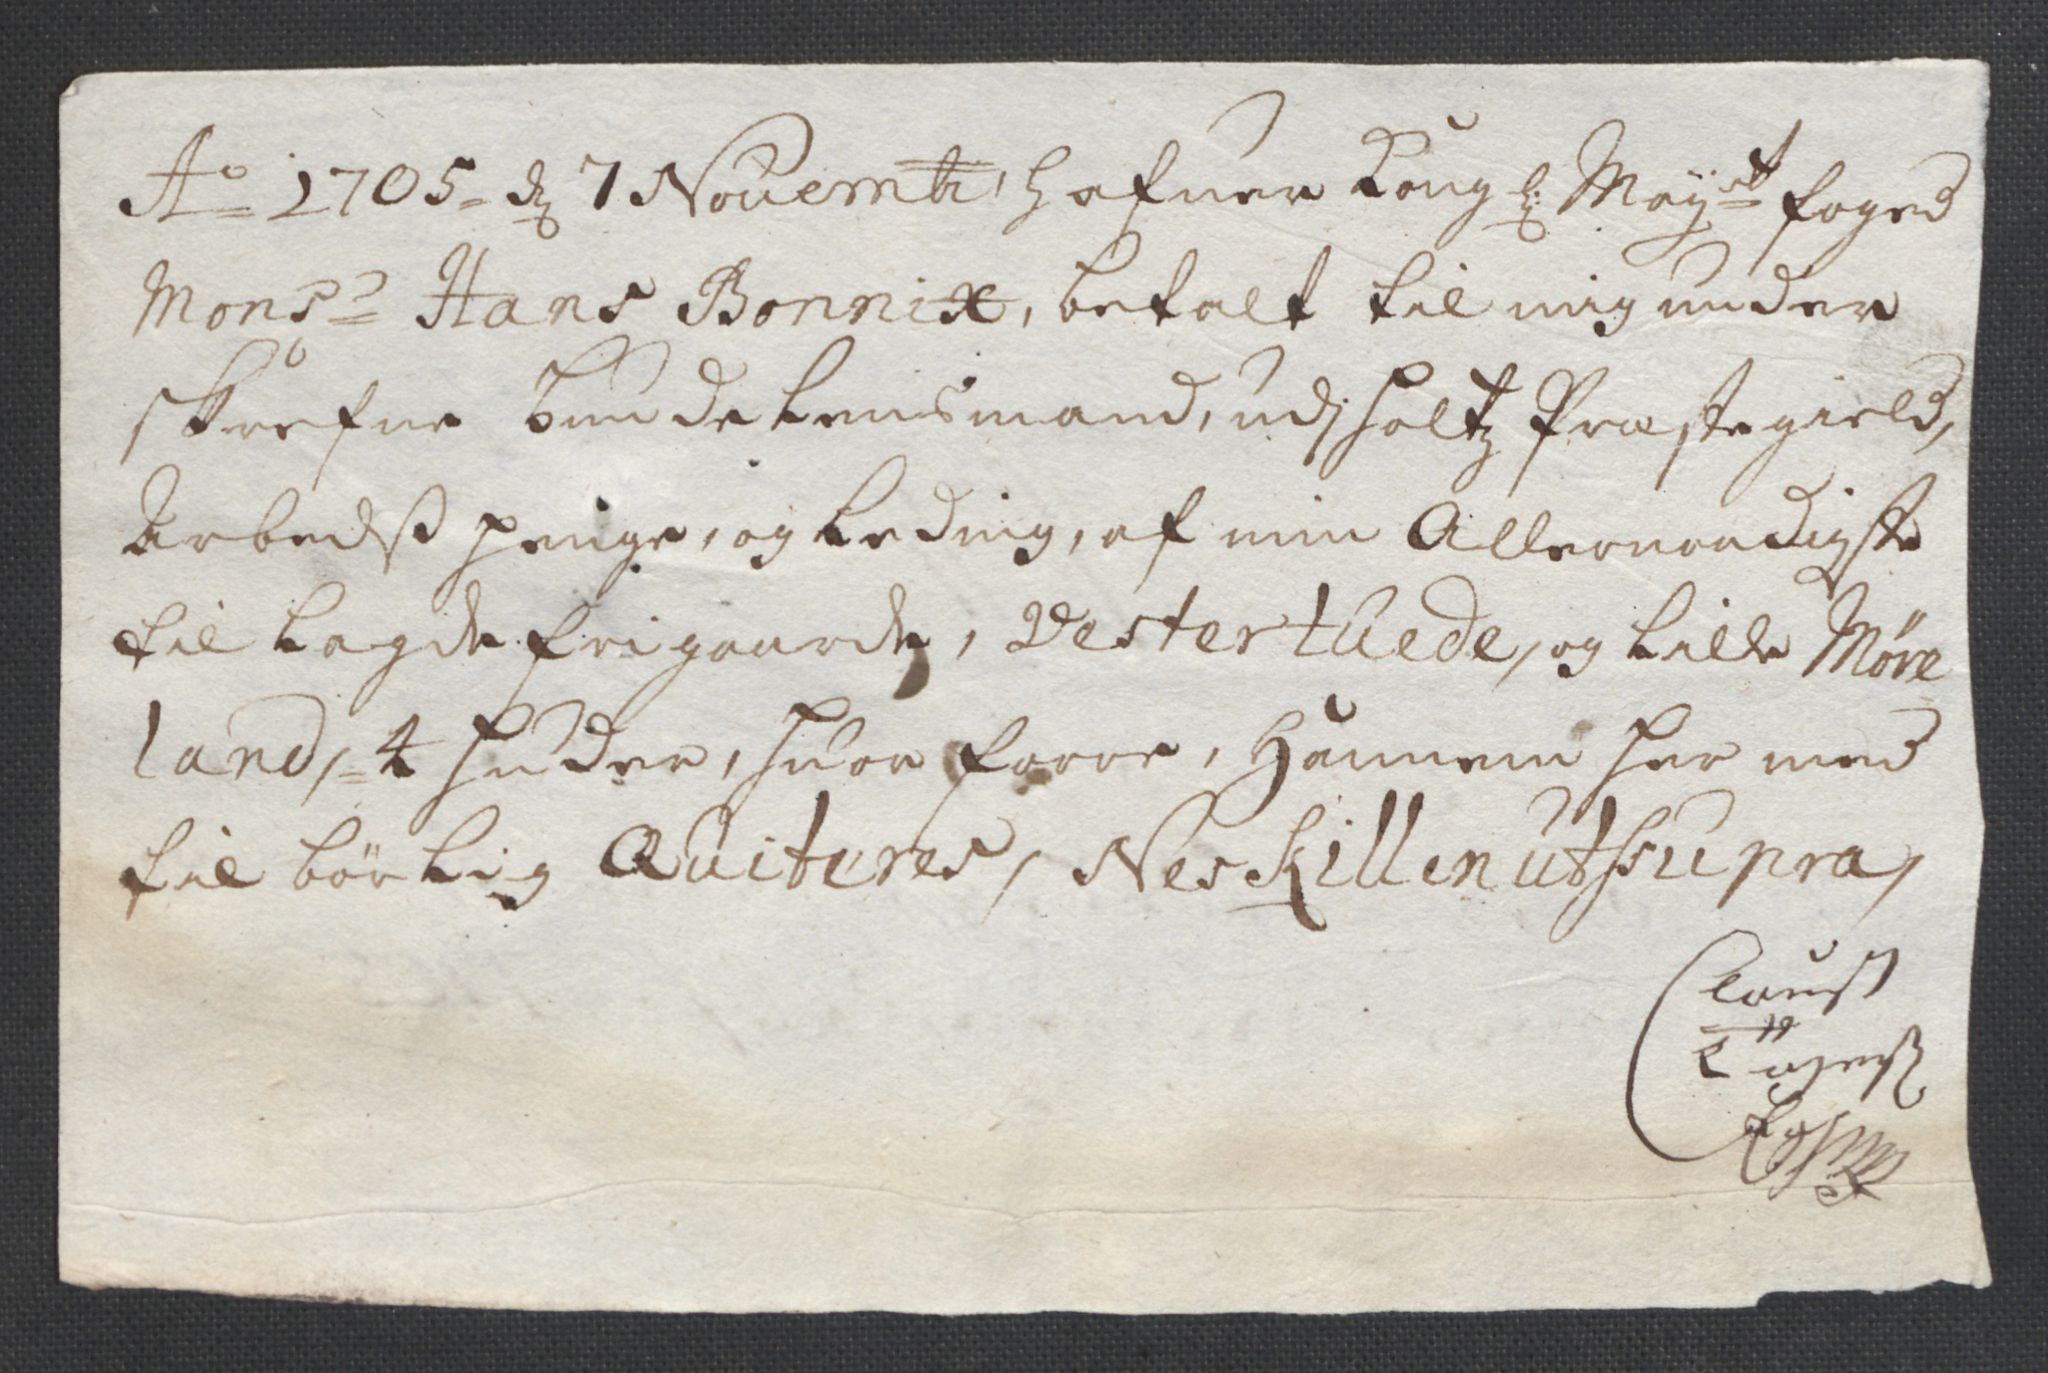 Ao 1705 d 7 Nouembr, hafuer Kong l: Mayt foged
Monsr Hans Bonnix, betalt til mig under
skrefne bunde Lensmand, udj holtz Præstegield,
Arbeidsß penge, og Leding, af min Allernaadigste
til lagde frigaarde, Vestertuede, og Lille Møre
land, 4 huder, huor forre, Hannem her med
til börlig Quiteres, Neskillen ut supra,
Clausß